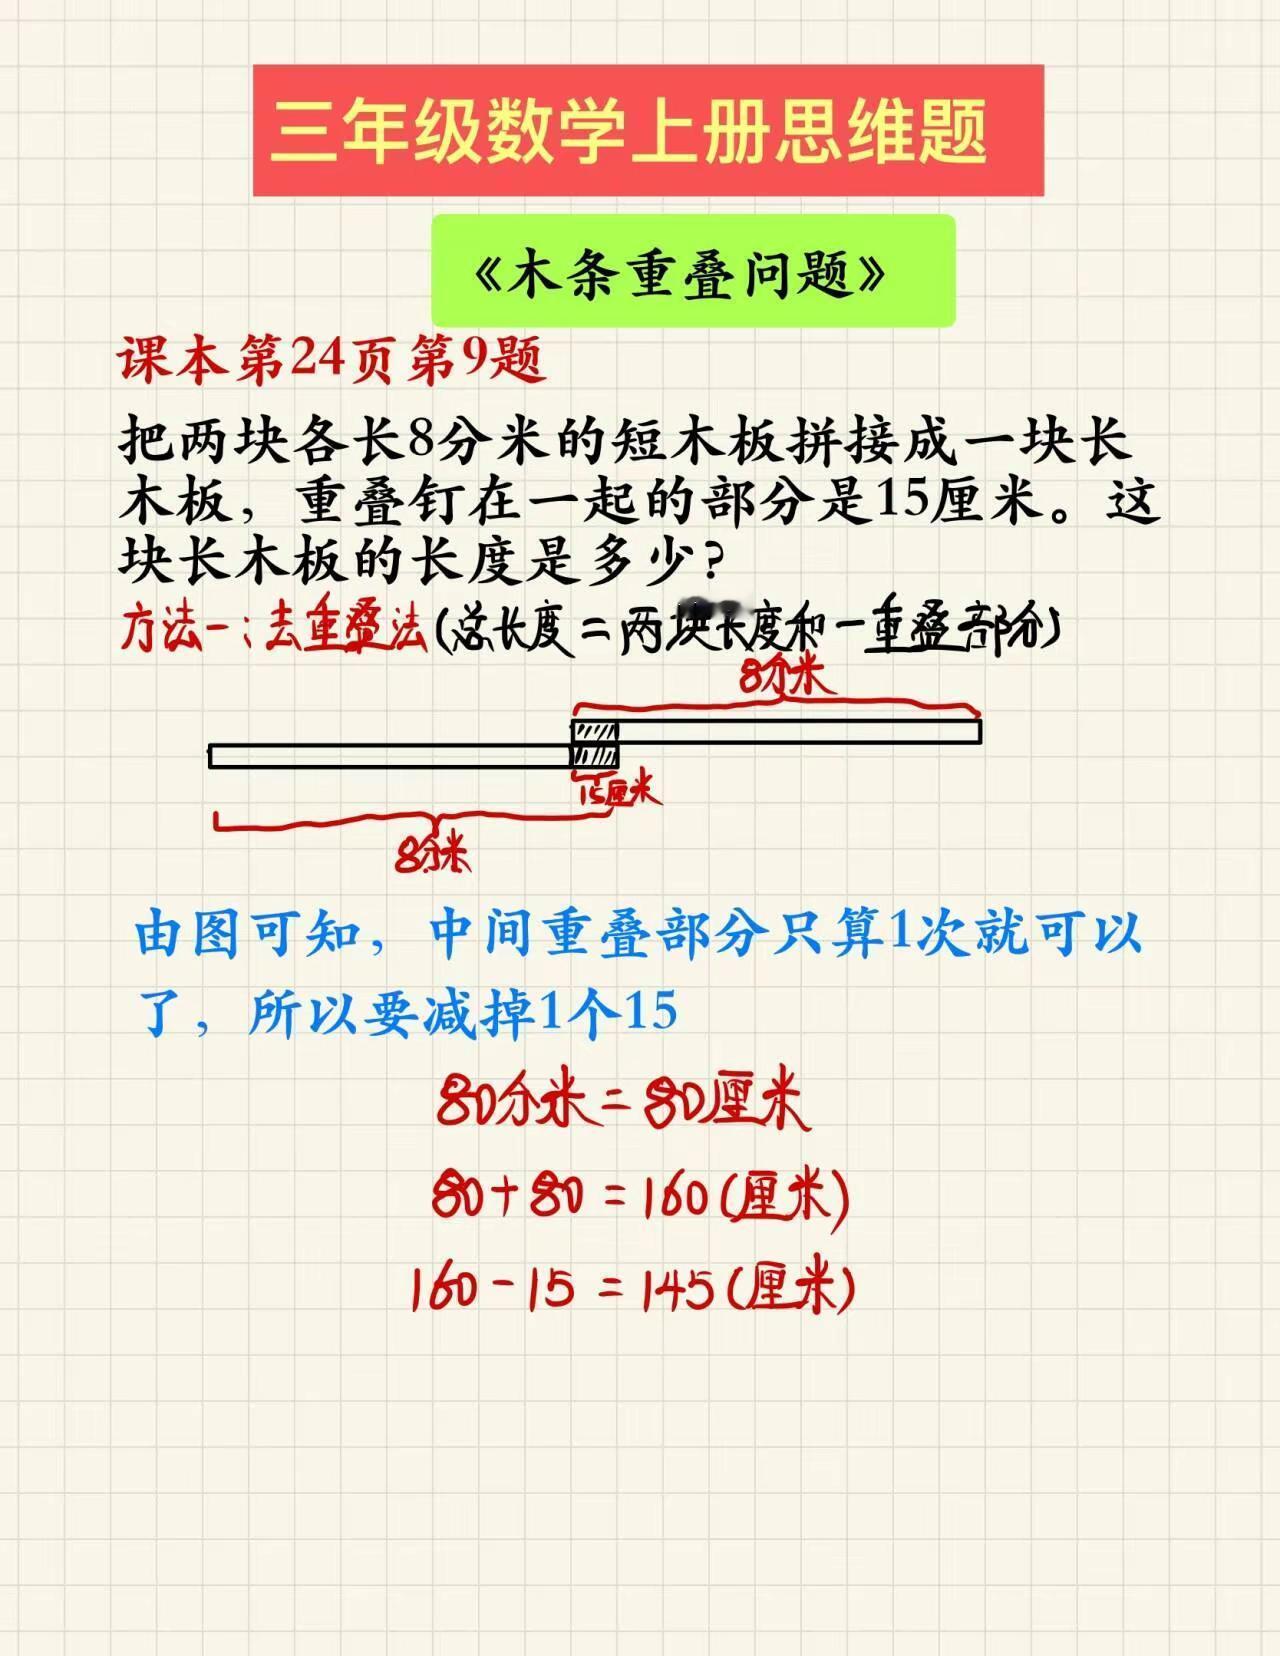 三年级数学上册思维题
《木条重叠问题》
课本第24页第9题
把两块各长8分米的短木板拼接成一块长
木板，重叠钉在一起的部分是15厘米。这
块长木板的长度是多少？
方法一：去重叠法(总长度＝两块长度和－重叠部分)
8分米
15厘米
8分米
由图可知，中间重叠部分只算1次就可以
了，所以要减掉1个15
80分米＝80厘米
80+80＝160(厘米)
160－15＝145(厘米)